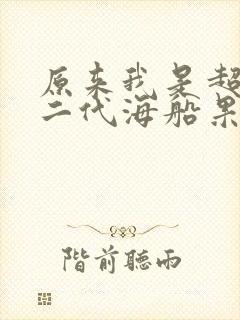 原来我是超
二代海船果
階前聽雨